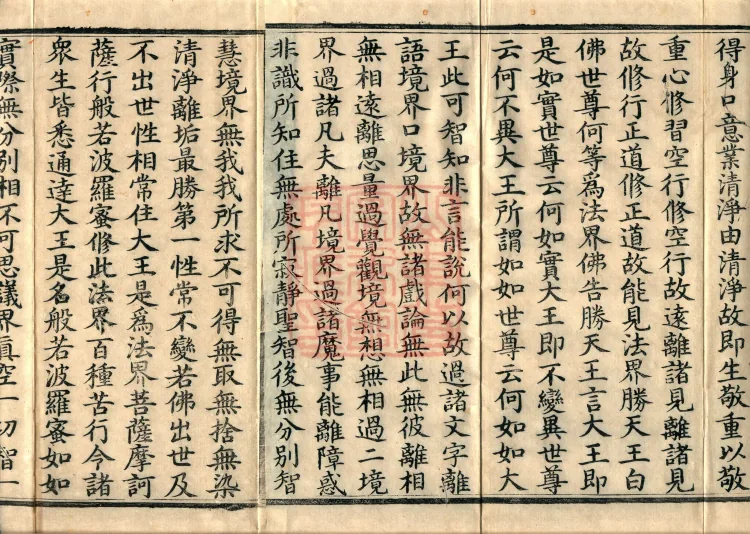 得身口意業清淨由清淨故即生敬重以敬
重心修習空行修空行故遠離諸見離諸見
故修行正道修正道故能見法界勝天王白
佛世尊何等爲法界佛告勝天王言大王即
是如實世尊云何如實大王即不變異世尊
云何不異大王所謂如如世尊云何如如大
王此可智知非言能說何以故過諸文字離
語境界口境界故無諸戲論無此無彼離相
無相遠離思量過覺觀境無想無相過二境
界過諸凡夫離凡境界過諸魔事能離障惑
非識所知住無處所寂靜聖智後無分別智
慧境界無我我所求不可得無取無捨無染
清淨離垢最勝第一性常不變若佛出世及
不出世性相常住大王是爲法界菩薩摩訶
薩行般若波羅蜜修此法界百種苦行令諸
衆生皆悉通達大王是名般若波羅蜜如如
實際無分別相不可思議界真空一切智一